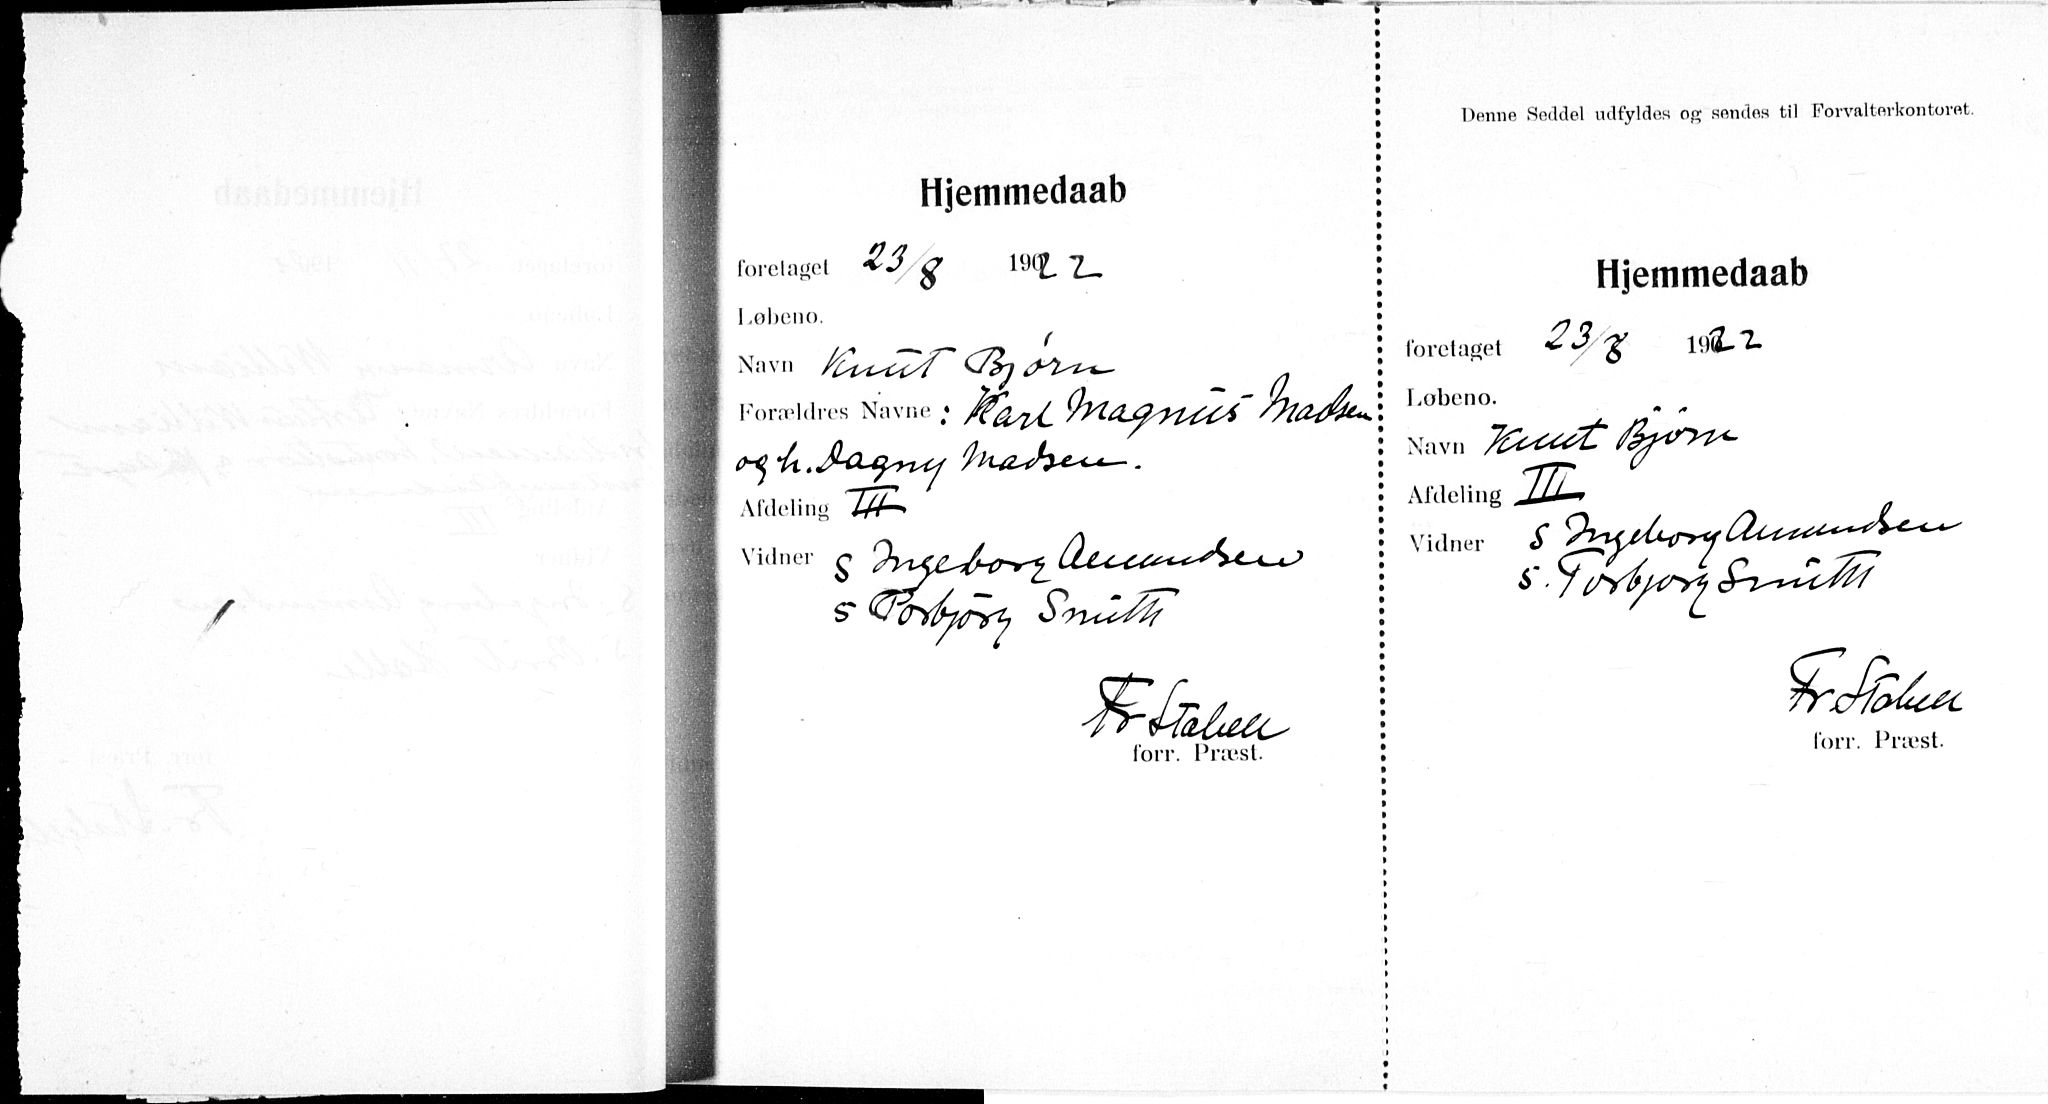 Hjemmedaab
foretaget 23/8 1922
Løbeno.
Navn Knut Bjørn
Forældres Navne: Karl Magnus Madsen
og h. Dagny Madsen.
Afdeling III
Vidner S Ingeborg Amundsen
S Torbjørg Smith
Fr Stabell
forr. Præst.
Denne Seddel udfyldes og sendes til Forvalterkontoret.
Hjemmedaab
foretaget 23/8 1922
Løbeno.
Navn Knut Bjørn
Afdeling III
Vidner S Ingeborg Amundsen
S. Torbjorg Smith
Fr Stabell
forr. Præst.